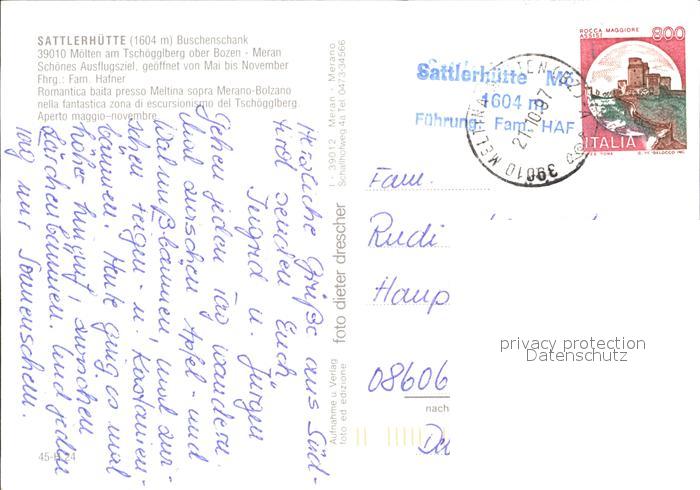 SATTLERHÜTTE (1604 m) Buschenschank
39010 Mölten am Tschögglberg ober Bozen - Meran
Schönes Ausflugsziel, geöffnet von Mai bis November
Fhrg.: Fam. Hafner
Romantica baita presso Meltina sopra Merano-Bolzano
nella fantastica zona di escursionismo del Tschögglberg.
Aperto maggio-novembre
Herzliche Grüße aus Süd-
tirol senden Euch
Ingrid u. Jürgen
Gehen jeden Tag wandern.
Mal zwischen Apfel- und
Walnußbäumen, mal zwi-
schen Feigen- u. Kastanien-
bäumen. Heute ging es mal
höher hinauf, zwischen
Lärchenbäumen. Und jeden
Tag nur Sonnenschein.
45-H 24
I - 39012 Meran - Merano
Schaffhofweg 4a Tel 0473-34566
foto dieter drescher
Aufnahme u. Verlag
foto ed edizione
Sattlerhütte
1604 m
Führung Fam. HAF
39010 MELTINA
27.10.97
ROCCA MAGGIORE
ASSISI
800
ITALIA
Fam.
Rudi
Haup
08606
nach
privacy protection
Datenschutz